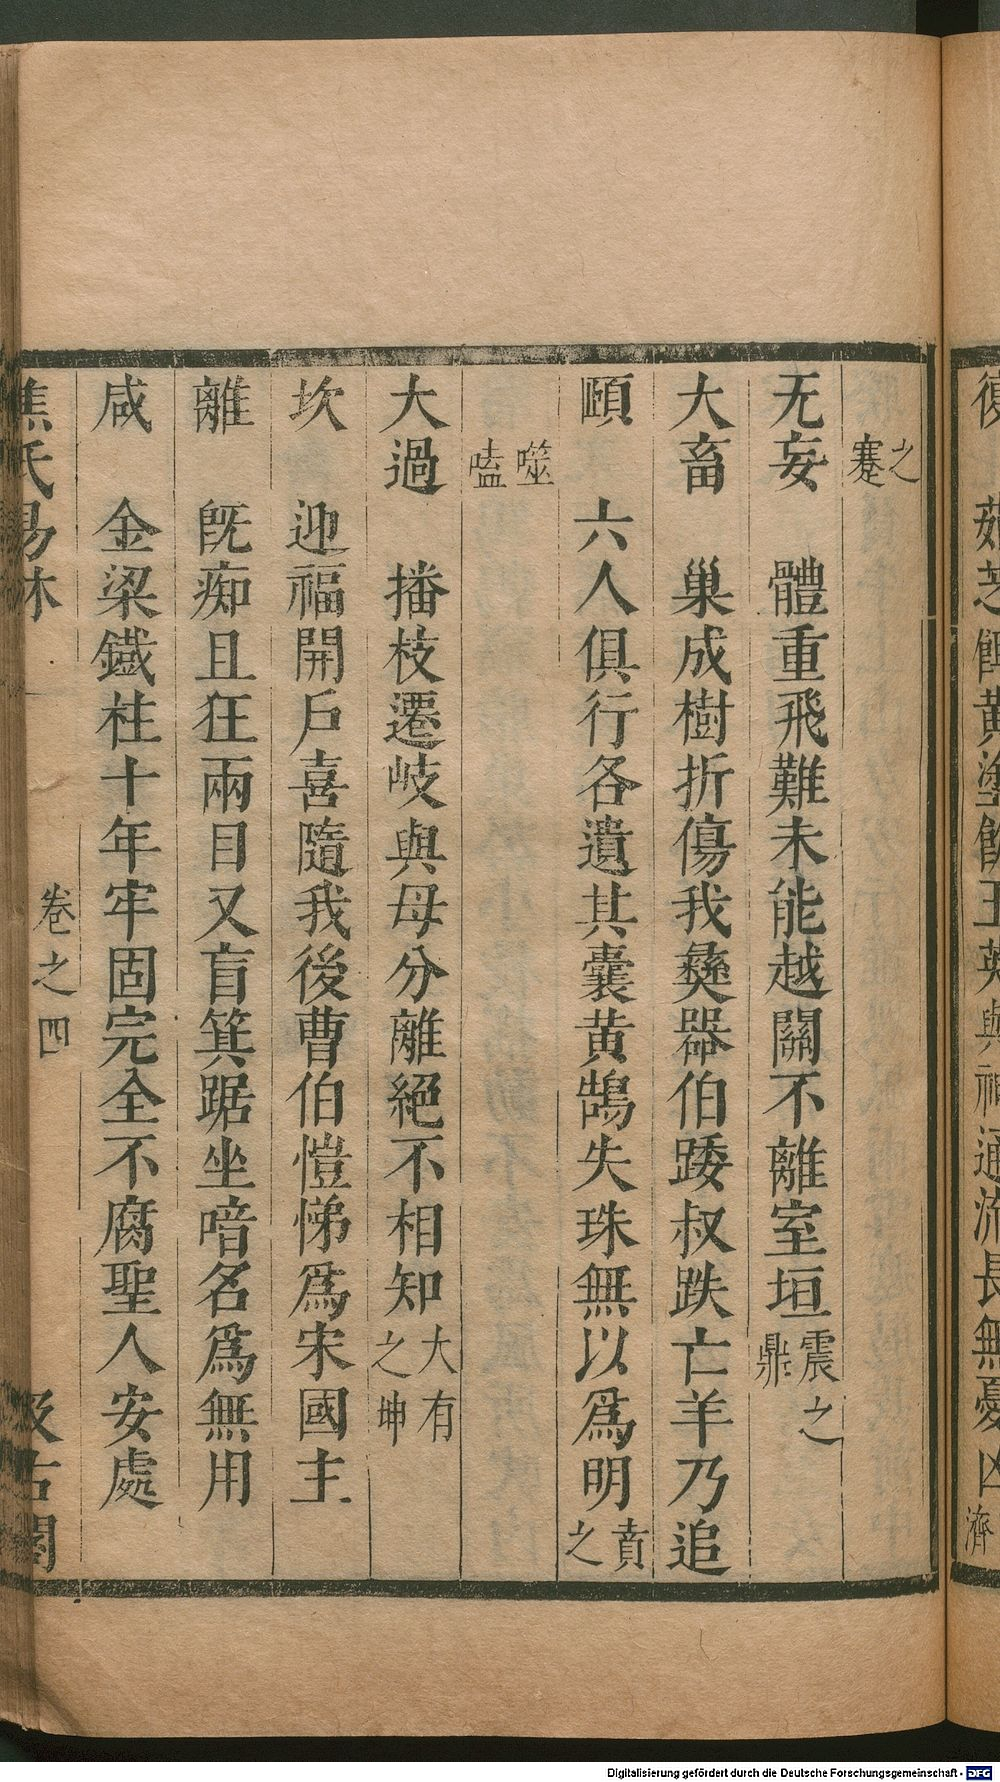 復　茹芝餌黃塗飲玉英與神通流長無憂凶濟
之蹇
无妄　體重飛難未能越關不離室垣震之鼎
大畜　巢成樹折傷我彝器伯踒叔跌亡羊乃追
頤　六人俱行各遺其囊黃鵠失珠無以爲明賁之
噬嗑
大過　播枝遷岐與母分離絕不相知大有之坤
坎　迎福開戶喜隨我後曹伯愷悌爲宋國主
離　旣痴且狂兩目又盲箕踞坐喑名爲無用
咸　金梁鐵柱十年牢固完全不腐聖人安處
焦氏易林　卷之四　汲古閣
Digitalisierung gefördert durch die Deutsche Forschungsgemeinschaft - DFG